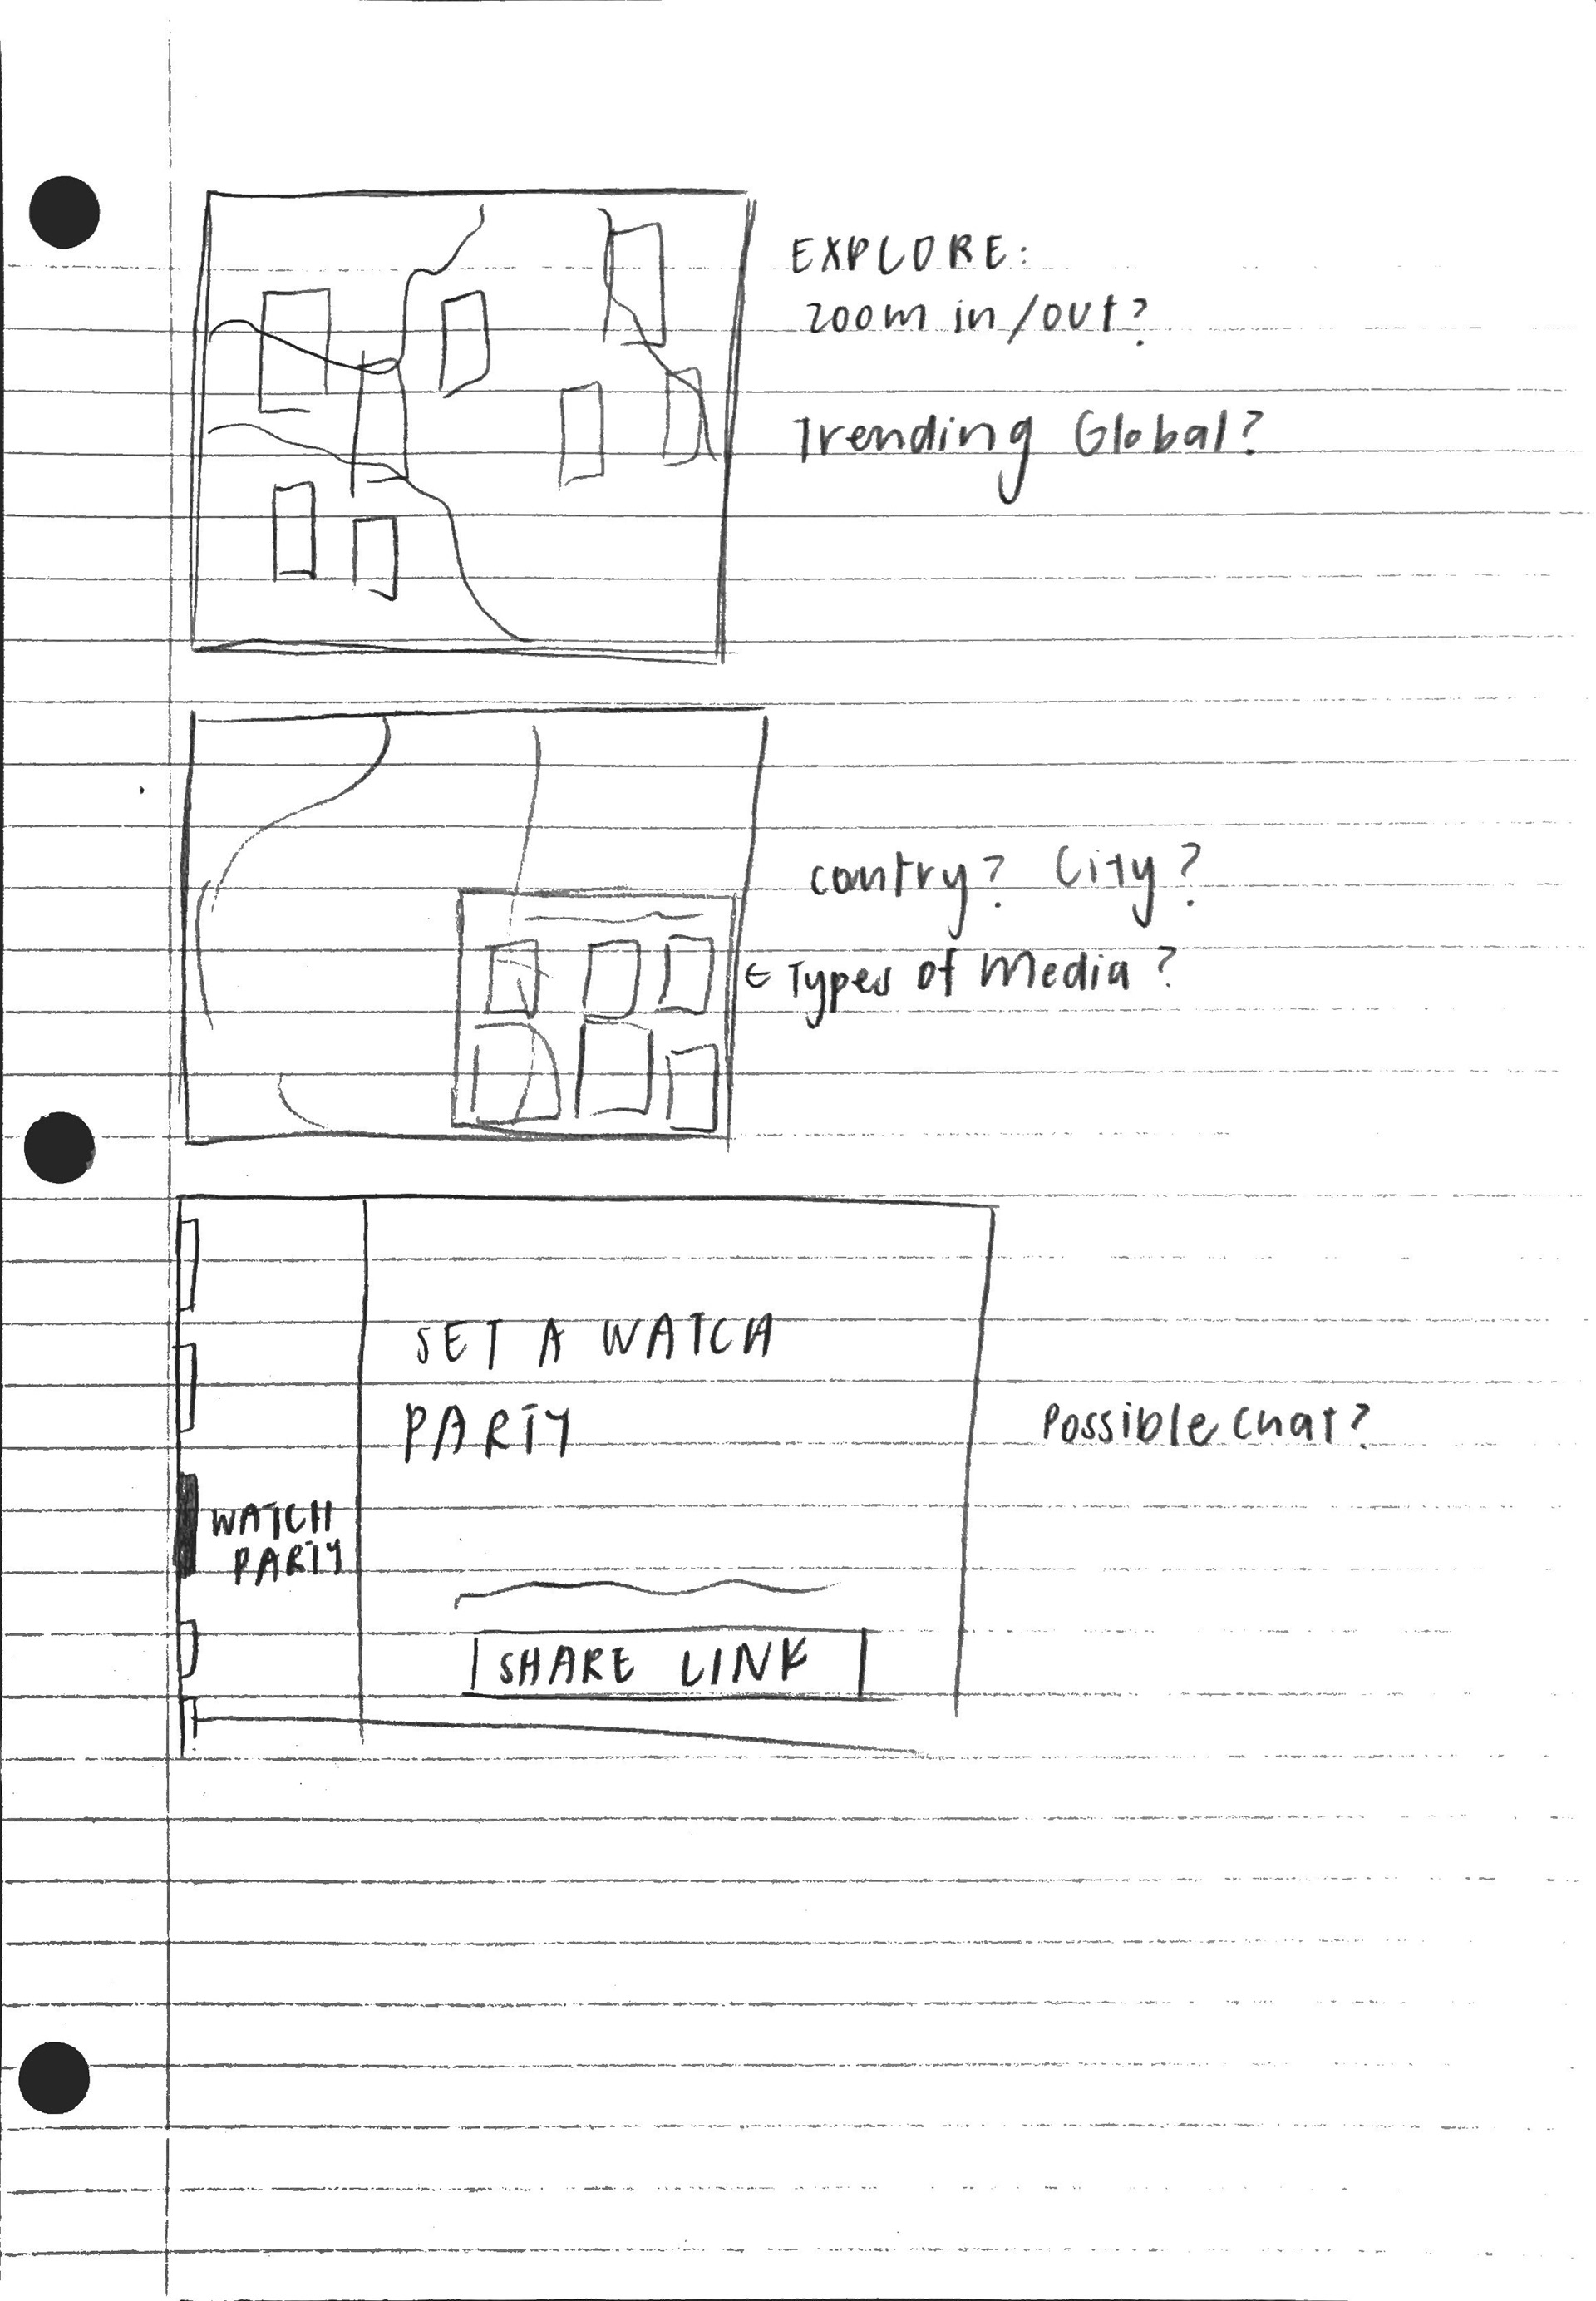 EXPLORE:
zoom in/out?
Trending Global?
Country? City?
← Types of Media?
SET A WATCH
PARTY
Possible Chat?
WATCH
PARTY
SHARE LINK